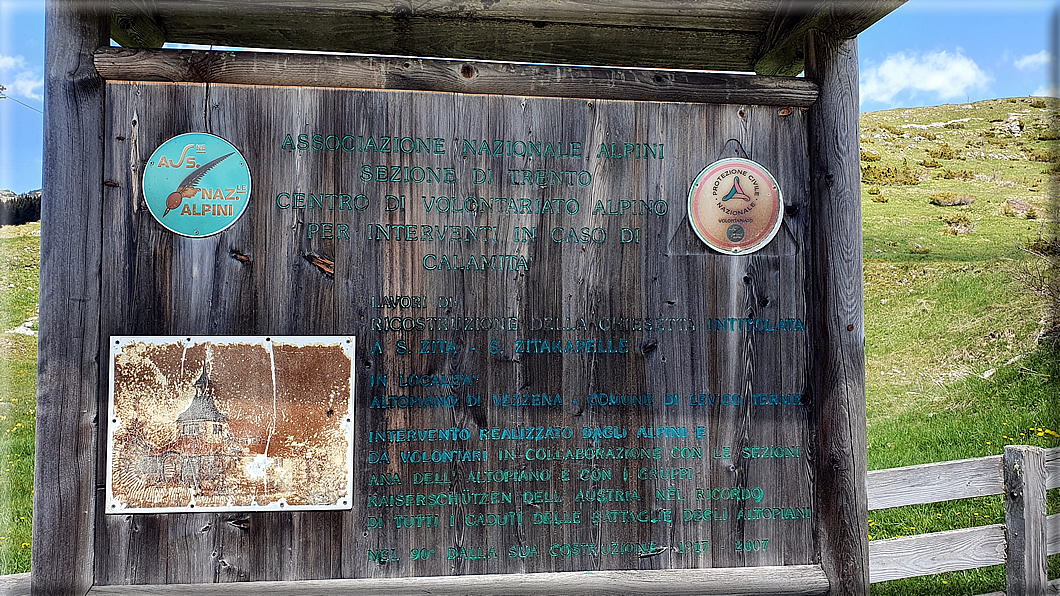 ASS.NE
NAZ.LE
ALPINI
ASSOCIAZIONE NAZIONALE ALPINI
SEZIONE DI TRENTO
CENTRO DI VOLONTARIATO ALPINO
PER INTERVENTI IN CASO DI
CALAMITA'
PROTEZIONE CIVILE
NAZIONALE
VOLONTARIATO
LAVORI DI
RICOSTRUZIONE DELLA CHIESETTA INTITOLATA
A S. ZITA - S. ZITAKAPELLE
IN LOCALITA'
ALTOPIANO DI VEZZENA - COMUNE DI LEVICO TERME
INTERVENTO REALIZZATO DAGLI ALPINI E
DA VOLONTARI IN COLLABORAZIONE CON LE SEZIONI
ANA DELL'ALTOPIANO E CON I GRUPPI
KAISERSCHÜTZEN DELL'AUSTRIA NEL RICORDO
DI TUTTI I CADUTI DELLE BATTAGLIE DEGLI ALTOPIANI
NEL 90° DALLA SUA COSTRUZIONE 1917 - 2007